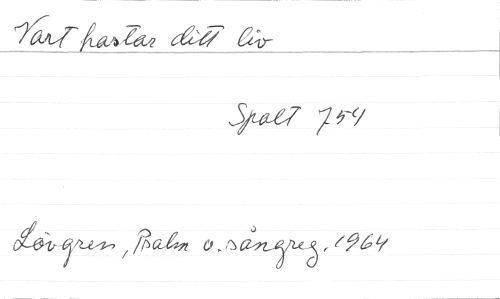 Vart hastar ditt liv
Spalt 754
Lövgren, Psalm o. sångreg. 1964